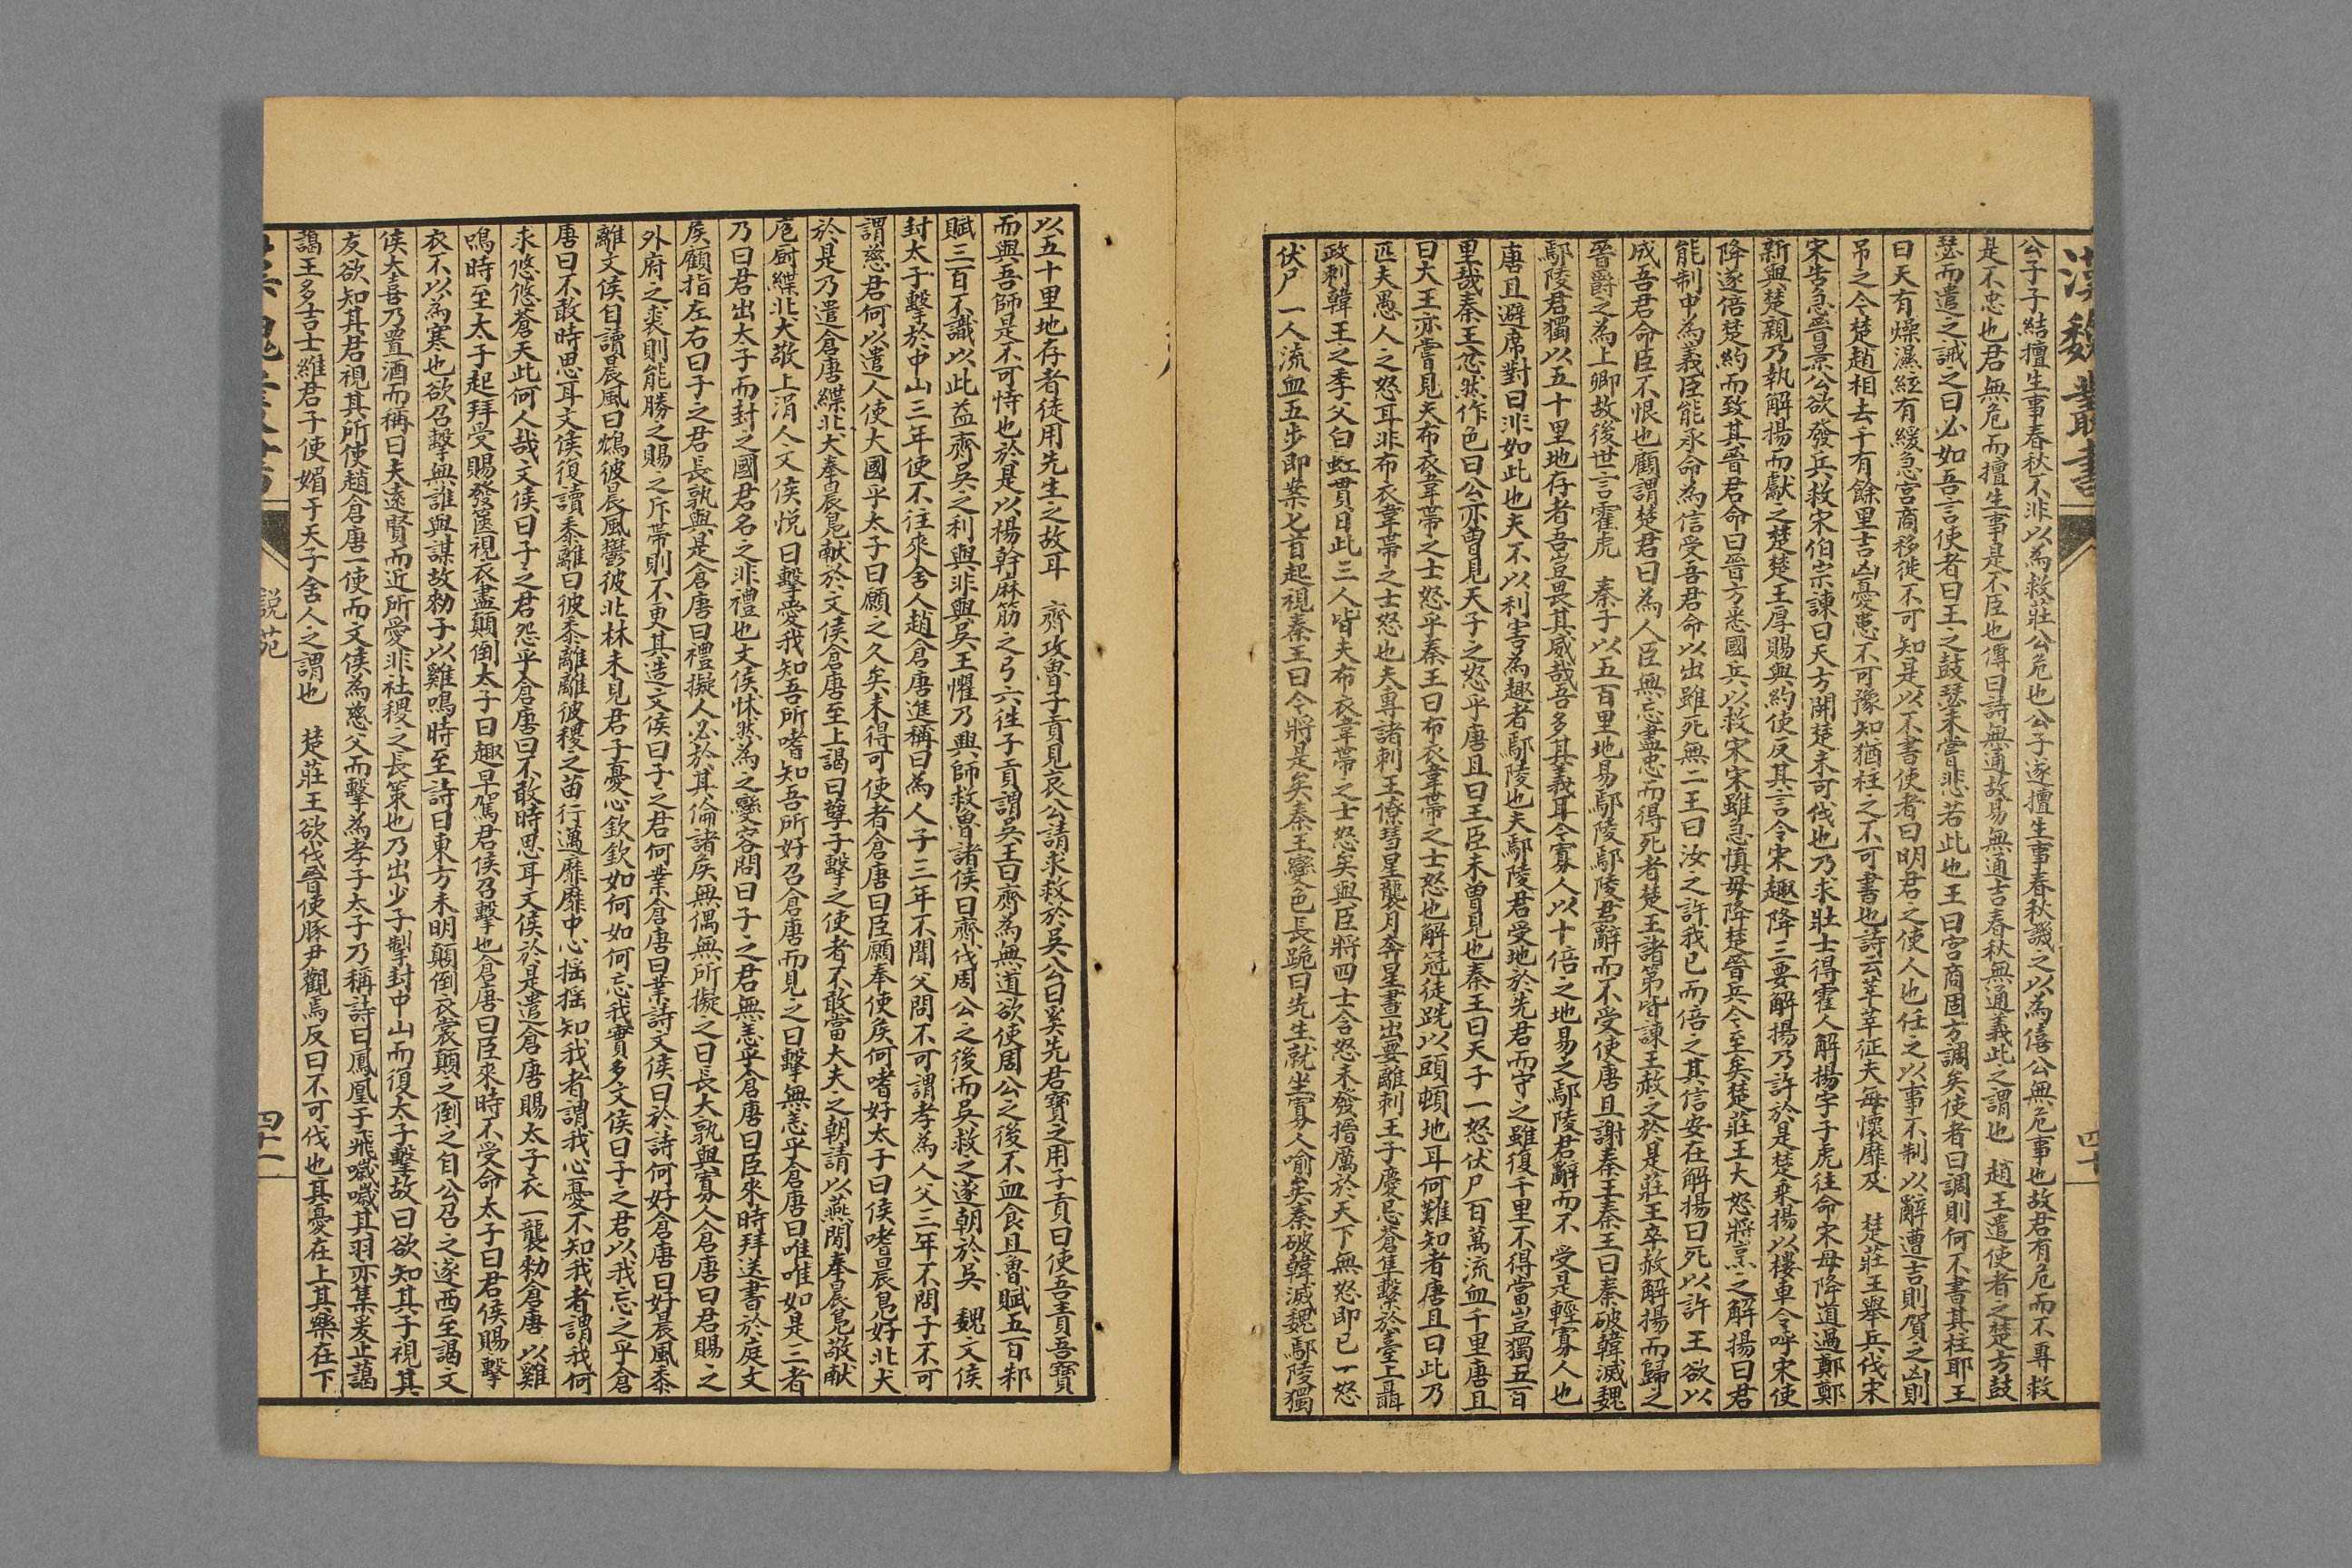 漢魏叢書
四十
公子子結擅生事春秋不非以為救莊公危也公子遂擅生事春秋譏之以為僖公無危事也故君有危而不專救
是不忠也君無危而擅生事是不臣也傳曰詩無通故易無通吉春秋無通義此之謂也　趙王遣使者之楚方鼓
瑟而遣之誡之曰必如吾言使者曰王之鼓瑟未嘗悲若此也王曰宮商固方調矣使者曰調則何不書其柱耶王
曰天有燥濕絃有緩急宮商移徙不可知是以不書使者曰明君之使人也任之以事不制以辭遭吉則賀之凶則
吊之今楚趙相去千有餘里吉凶憂患不可豫知猶柱之不可書也詩云莘莘征夫每懷靡及　楚莊王舉兵伐宋
宋告急晉景公欲發兵救宋伯宗諫曰天方開楚未可伐也乃求壯士得霍人解揚字子虎往命宋毋降道過鄭鄭
新與楚親乃執解揚而獻之楚楚王厚賜與約使反其言令宋趣降三要解揚乃許於是楚乘揚以樓車令呼宋使
降遂倍楚約而致其晉君命曰晉方悉國兵以救宋宋雖急慎毋降楚晉兵今至矣楚莊王大怒將烹之解揚曰君
能制中為義臣能承命為信受吾君命以出雖死無二王曰汝之許我已而倍之其信安在解揚曰死以許王欲以
成吾君命臣不恨也顧謂楚君曰為人臣無忘盡忠而得死者楚王諸第皆諫王赦之於是莊王卒赦解揚而歸之
晉爵之為上卿故後世言霍虎　秦子以五百里地易鄢陵鄢陵君辭而不受使唐且謝秦王秦王曰秦破韓滅魏
鄢陵君獨以五十里地存者吾豈畏其威哉吾多其義耳今寡人以十倍之地易之鄢陵君辭而不受是輕寡人也
唐且避席對曰非如此也夫不以利害為趣者鄢陵也夫鄢陵君受地於先君而守之雖復千里不得當豈獨五百
里哉秦王忿然作色曰公亦曾見天子之怒乎唐且曰王臣未曾見也秦王曰天子一怒伏尸百萬流血千里唐且
曰大王亦嘗見夫布衣韋帶之士怒乎秦王曰布衣韋帶之士怒也解冠徒跣以頭頓地耳何難知者唐且曰此乃
匹夫愚人之怒耳非布衣韋帶之士怒也夫專諸刺王僚彗星襲月奔星晝出要離刺王子慶忌蒼隼擊於臺上聶
政刺韓王之季父白虹貫日此三人皆夫布衣韋帶之士怒矣與臣將四士含怒未發搢厲於天下無怒即已一怒
伏尸一人流血五步即案匕首起視秦王曰今將是矣秦王變色長跪曰先生就坐寡人喻矣秦破韓滅魏鄢陵獨
以五十里地存者徒用先生之故耳　齊攻魯子貢見哀公請求救於吳公曰奚先君寶之用子貢曰使吾責吾寶
而與吾師是不可恃也於是以楊幹麻筋之弓六徃子貢謂吳王曰齊為無道欲使周公之後不血食且魯賦五百邾
賦三百不識以此益齊吳之利與非與吳王懼乃興師救魯諸侯曰齊伐周公之後而吳救之遂朝於吳　魏文侯
封太子擊於中山三年使不往來舍人趙倉唐進稱曰為人子三年不聞父問不可謂孝為人父三年不問子不可
謂慈君何以遣人使大國乎太子曰願之久矣未得可使者倉唐曰臣願奉使侯何嗜好太子曰侯嗜晨鳧好北犬
於是乃遣倉唐緤北犬奉晨鳧獻於文侯倉唐至上謁曰孽子擊之使者不敢當大夫之朝請以燕閒奉晨鳧敬獻
庖廚緤北犬敬上涓人文侯悅曰擊愛我知吾所嗜知吾所好召倉唐而見之曰擊無恙乎倉唐曰唯唯如是三者
乃曰君出太子而封之國君名之非禮也文侯怵然為之變容問曰子之君無恙乎倉唐曰臣來時拜送書於庭文
侯顧指左右曰子之君長孰與是倉唐曰禮擬人必於其倫諸侯無偶無所擬之曰長大孰與寡人倉唐曰君賜之
外府之裘則能勝之賜之斥帶則不更其造文侯曰子之君何業倉唐曰業詩文侯曰於詩何好倉唐曰好晨風黍
離文侯自讀晨風曰鴥彼晨風鬱彼北林未見君子憂心欽欽如何如何忘我實多文侯曰子之君以我忘之乎倉
唐曰不敢時思耳文侯復讀黍離曰彼黍離離彼稷之苗行邁靡靡中心搖搖知我者謂我心憂不知我者謂我何
求悠悠蒼天此何人哉文侯曰子之君怨乎倉唐曰不敢時思耳文侯於是遣倉唐賜太子衣一襲勑倉唐以雞
鳴時至太子起拜受賜發篋視衣盡顛倒太子曰趣早駕君侯召擊也倉唐曰臣來時不受命太子曰君侯賜擊
衣不以為寒也欲召擊無誰與謀故勑子以雞鳴時至詩曰東方未明顛倒衣裳顛之倒之自公召之遂西至謁文
侯大喜乃置酒而稱曰夫遠賢而近所愛非社稷之長策也乃出少子摯封中山而復太子擊故曰欲知其子視其
友欲知其君視其所使趙倉唐一使而文侯為慈父而擊為孝子太子乃稱詩曰鳳凰于飛噦噦其羽亦集爰止藹
藹王多吉士維君子使媚于天子舍人之謂也　楚莊王欲伐晉使豚尹觀焉反曰不可伐也其憂在上其樂在下
說苑
四十一